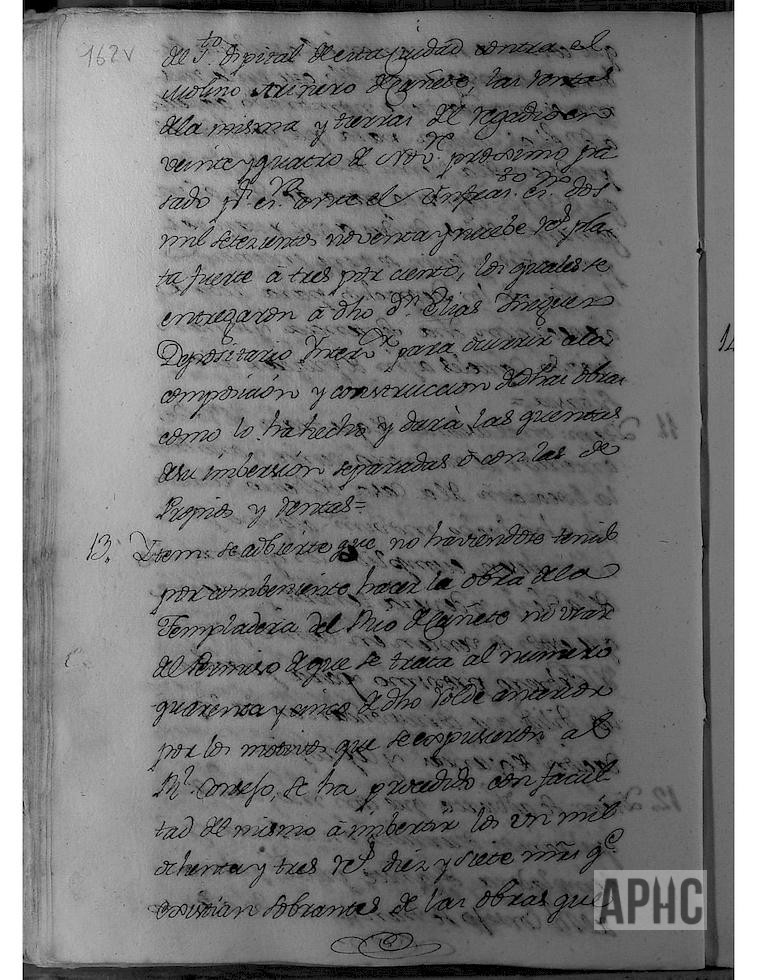 162v
de S.to Ospital de esta Ciudad contra el
Molino Arinero de Cañete, las rentas
dela misma y tierras del regadio en
veinte y quatro de Nov.re proximo pa
sado p.r es.ra ante el Infras.to es.no dos
mil setezientos noventa y nuebe r.s pla-
ta fuerte à tres por ciento, los quales se
entregaron à dho d.n Elias
Depositario para ocurrir ala
composición y construccion de dhas obras
como lo ha hecho y darà las quentas
de su imbersión separadas ò con las de
Propios y rentas=
13. Ytem: se adbierte que no haviendose tenido
por combeniente hacer la obra dela
Templadera del Rio de Cañete ni usar
del Permiso de que se trata al numero
quarenta y cinco de dho anterior
por los motivos que se expusieron al
R.l Consejo, se ha procedido con facul
tad del mismo à imbertir los un mil
ochenta y tres r.s diez y siete mrs q.e
existian sobrantes de las obras que
14
11
12
APHC